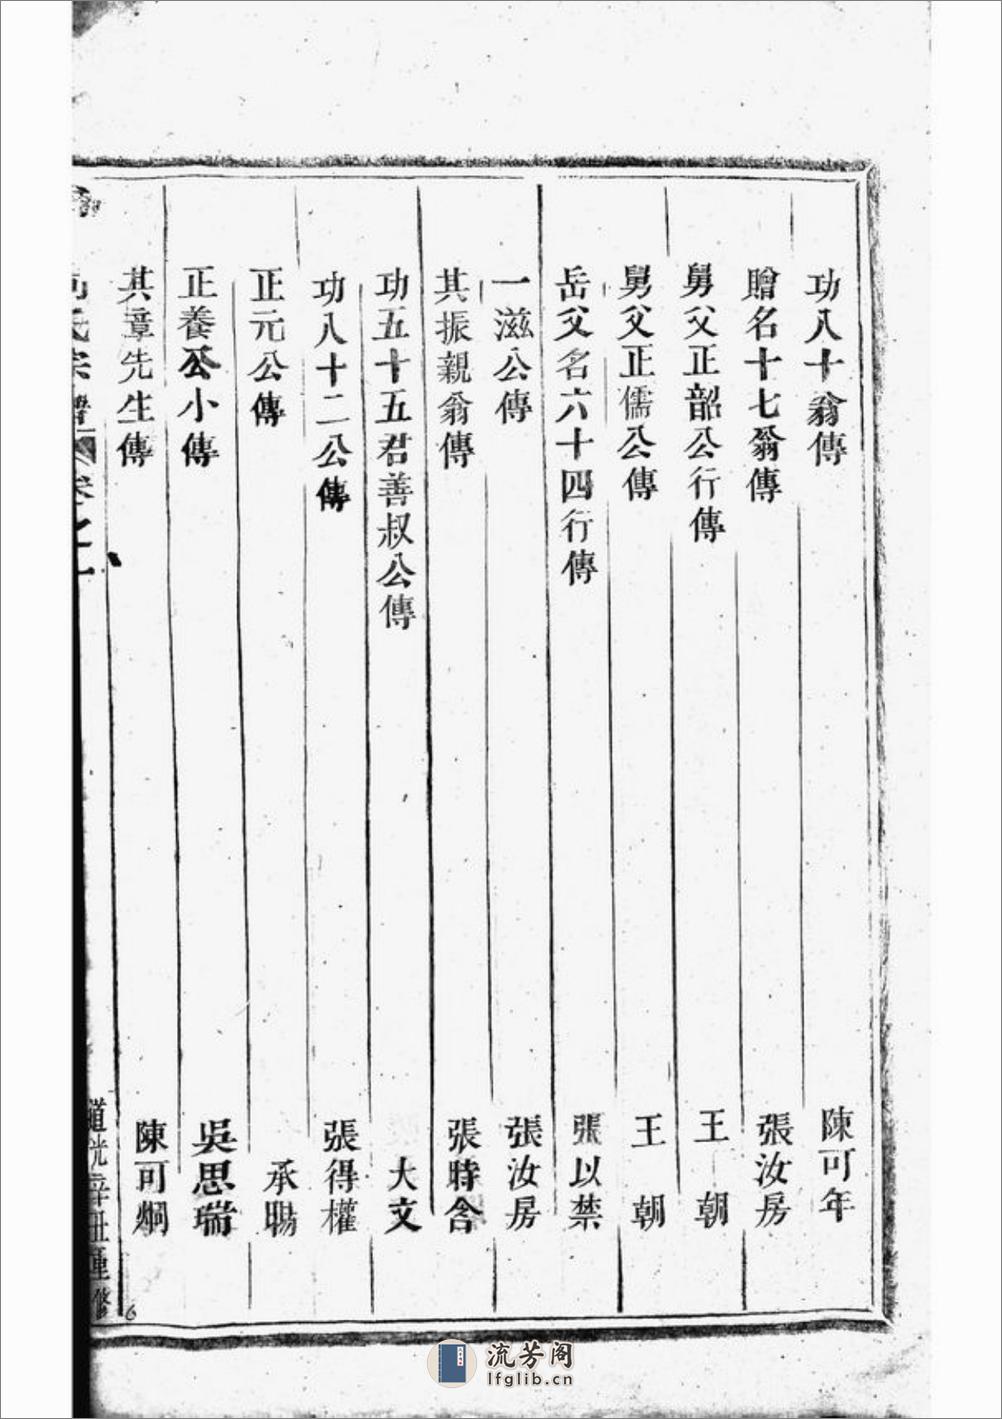 功八十翁傳 陳可年
贈名十七翁傳 張汝房
舅父正韶公行傳 王朝
舅父正儒公傳 王朝
岳父名六十四行傳 張以禁
一滋公傳 張汝房
其振親翁傳 張時含
功五十五君善叔公傳 大文
功八十二公傳 張得權
正元公傳 承賜
正養公小傳 吳思瑞
其章先生傳 陳可烱
氏宗譜 卷之一
道光辛丑重修
6
流芳阁
lfglib.cn